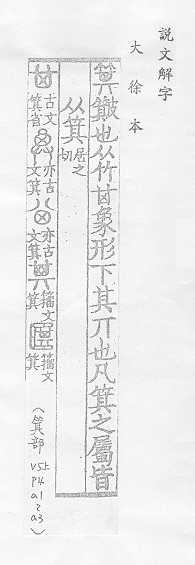 説文解字
大徐本
箕簸也从竹𠀠象形下其丌也凡箕之屬皆
从箕居之切
古文箕省
亦古文箕
亦古文箕
籀文箕
籀文箕
(箕部
V5上
P4
a1
2
a3)